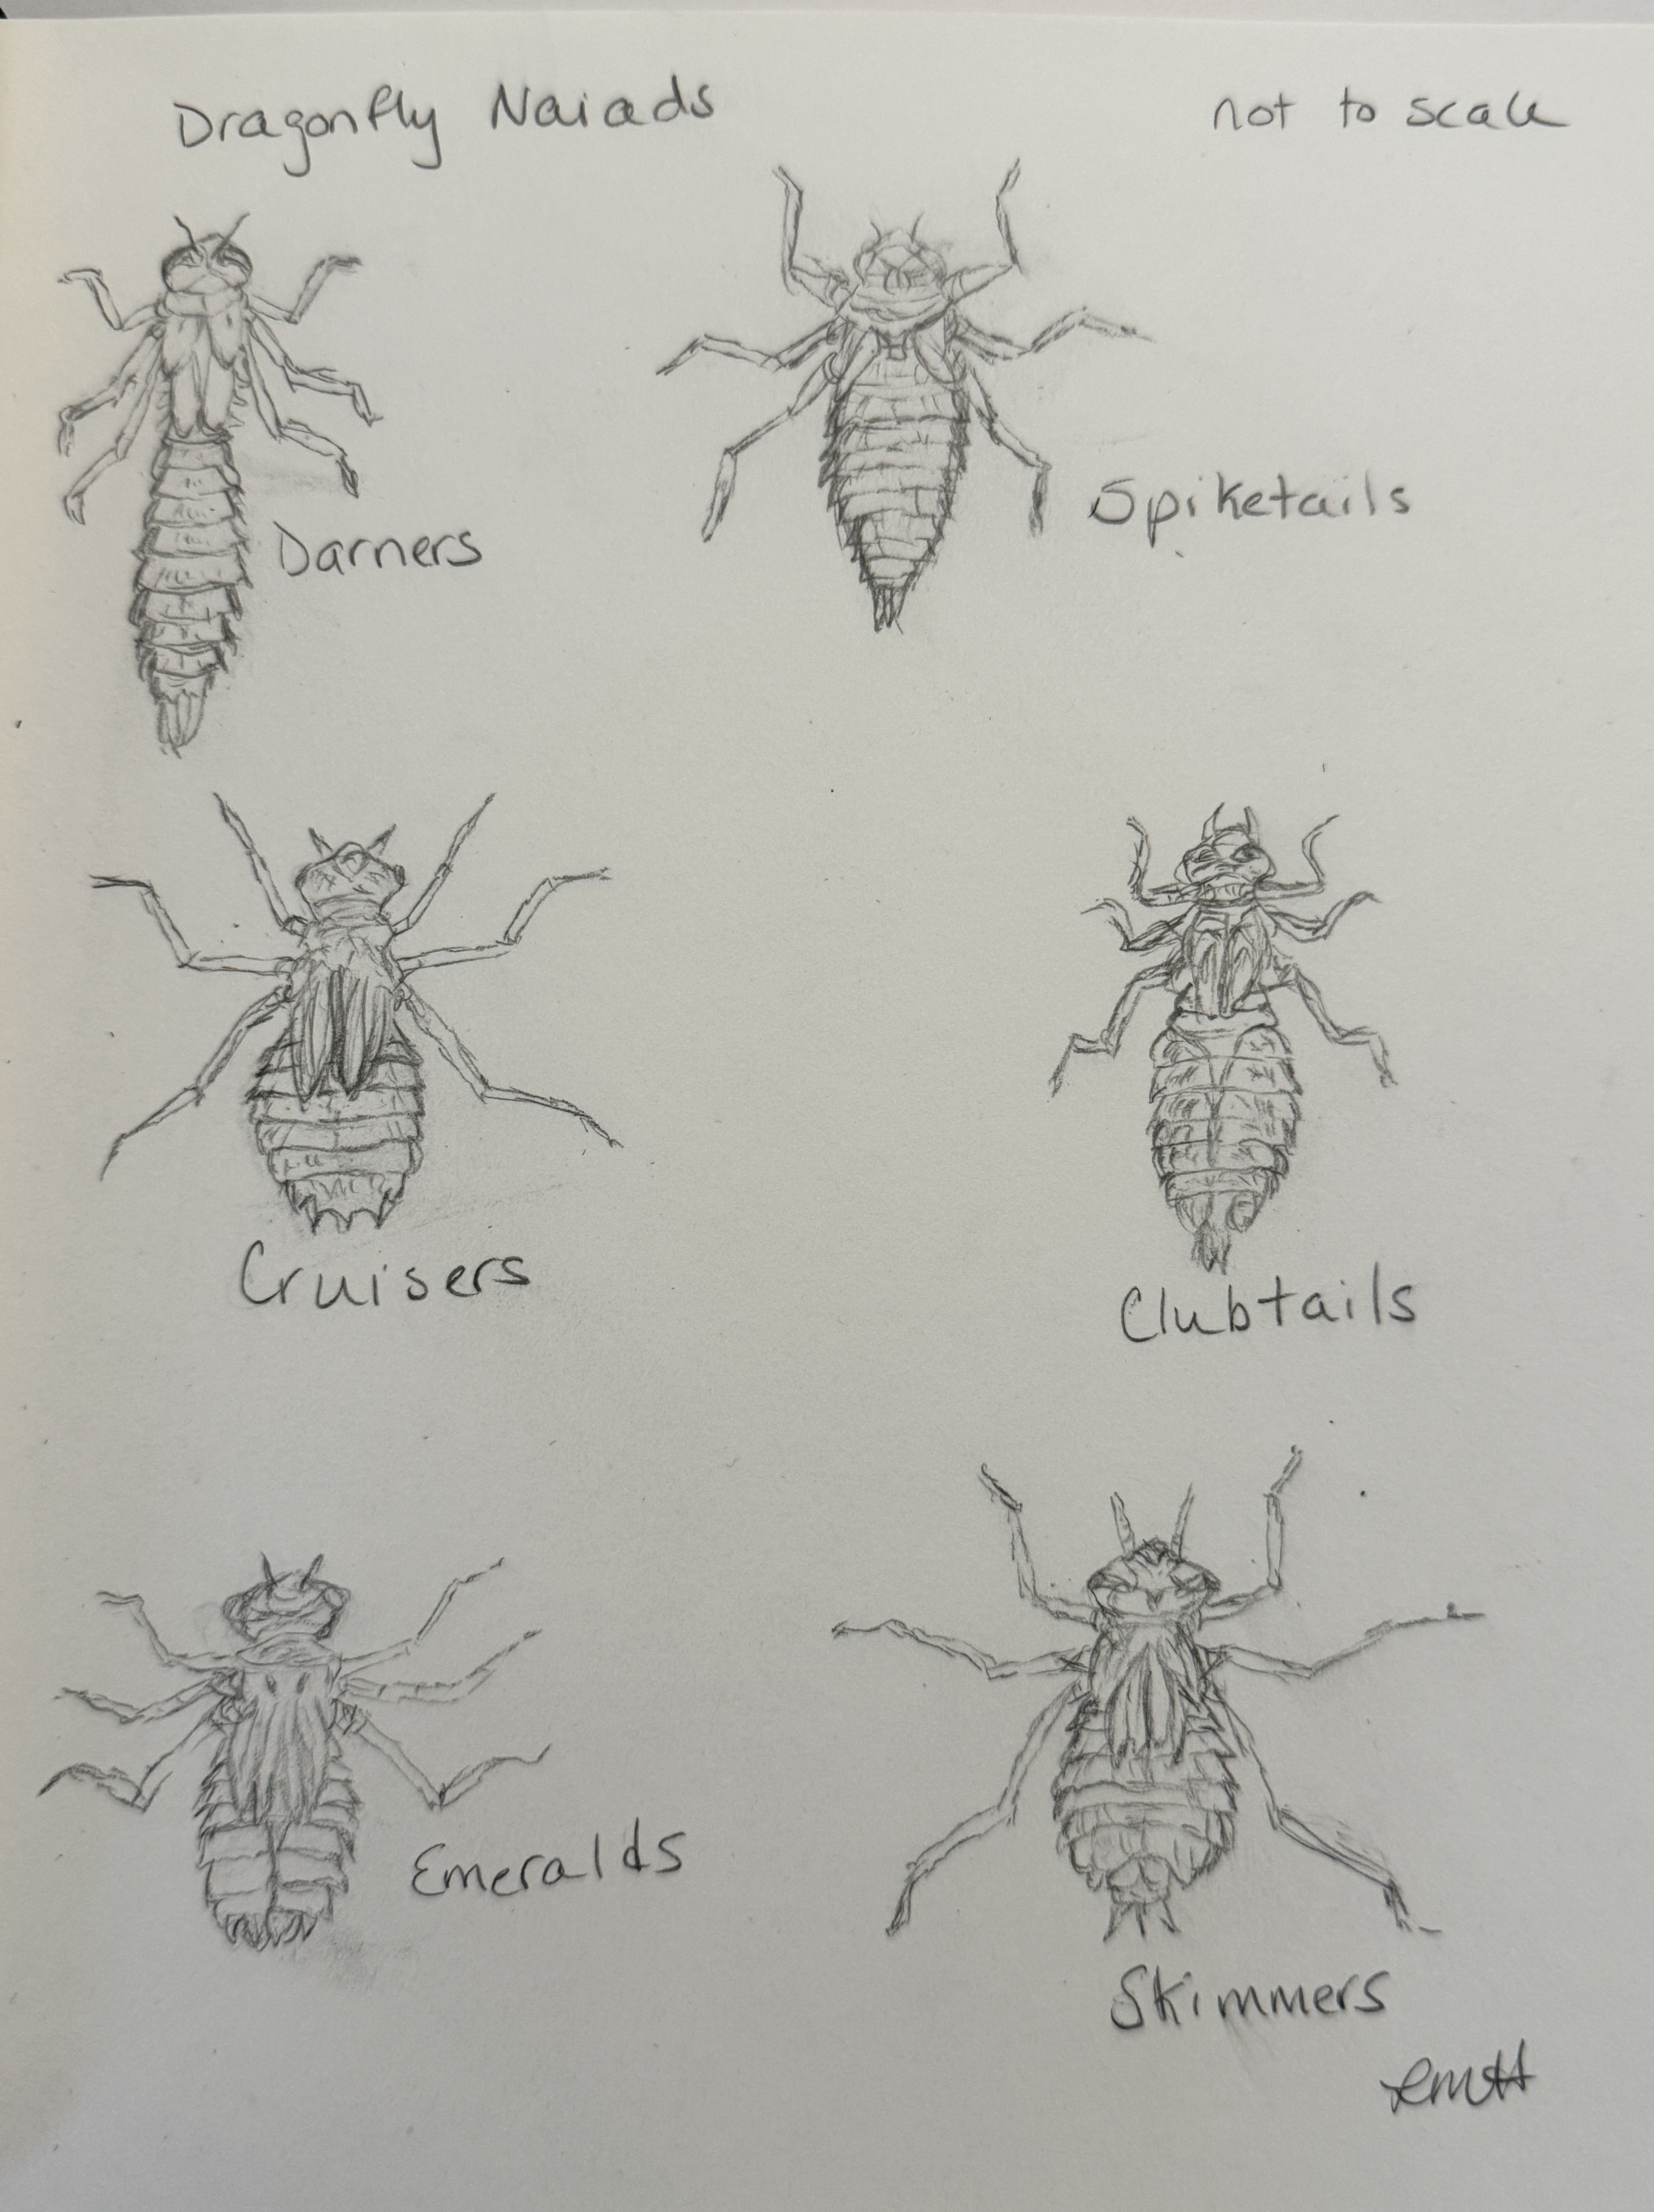 Dragonfly Naiads
not to scale
Darners
Spiketails
Cruisers
Clubtails
Emeralds
Skimmers